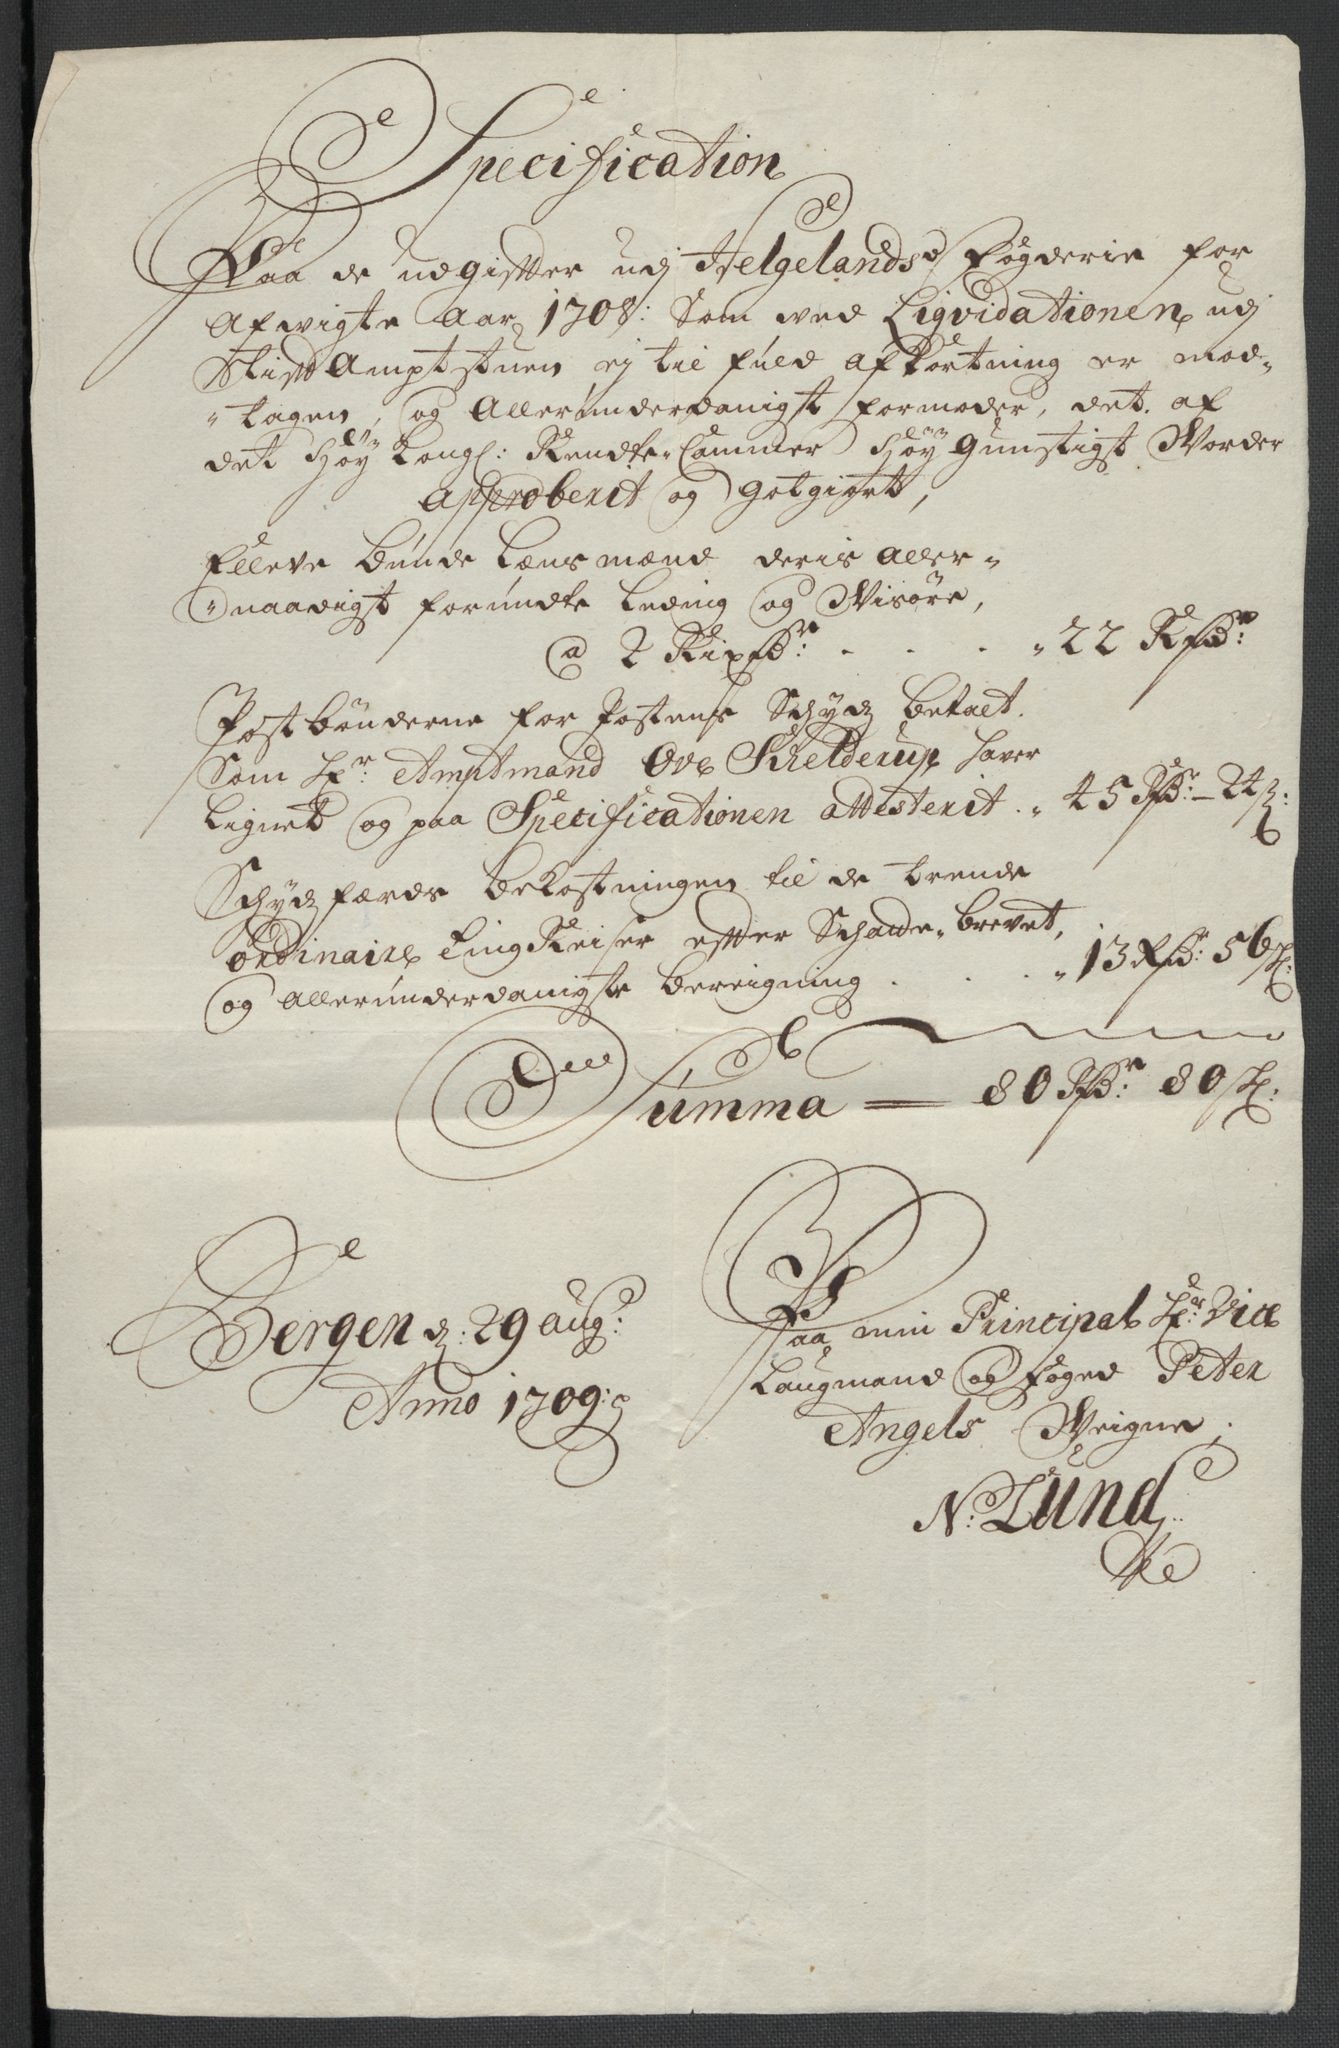 Specification
Paa de udgiffter udj Helgelands Fogderie for
Afvigte Aar 1708: Som ved Liqvidationen udj
Stift Amptstuen ej til fuld afkortning er mod-
tagen, og Allerunderdanigst formoder, det af
det Høy Kongl: Rendte-Cammer Høy Gunstigst Worder
Approberit og Gotgiort,
Elleve Bunde Lensmænd deris Aller-
naadigst forundte Leding og Wisøre,
a 2 Rixdr: . . . 22 Rdr:
Postbønderne for Postens Schydz betalt.
Som Hr: Amptmand Ove Schelderup haver
Lignet og paa Specificationen attesterit. 45 Rdr: - 24 s:
Schydzfærds bekostningen til de trende
ordinaire Ting Reiser effter Schatte-brevet,
og allerunderdanigste bereigning . . . 13 Rdr: 56 s:
Summa — 80 Rdr: 80 s:
Bergen d: 29 Aug:
Anno 1709:
Paa min Principal Hr: Vice
Laugmand og Foged Peter
Angels Weigne,
N: Lund